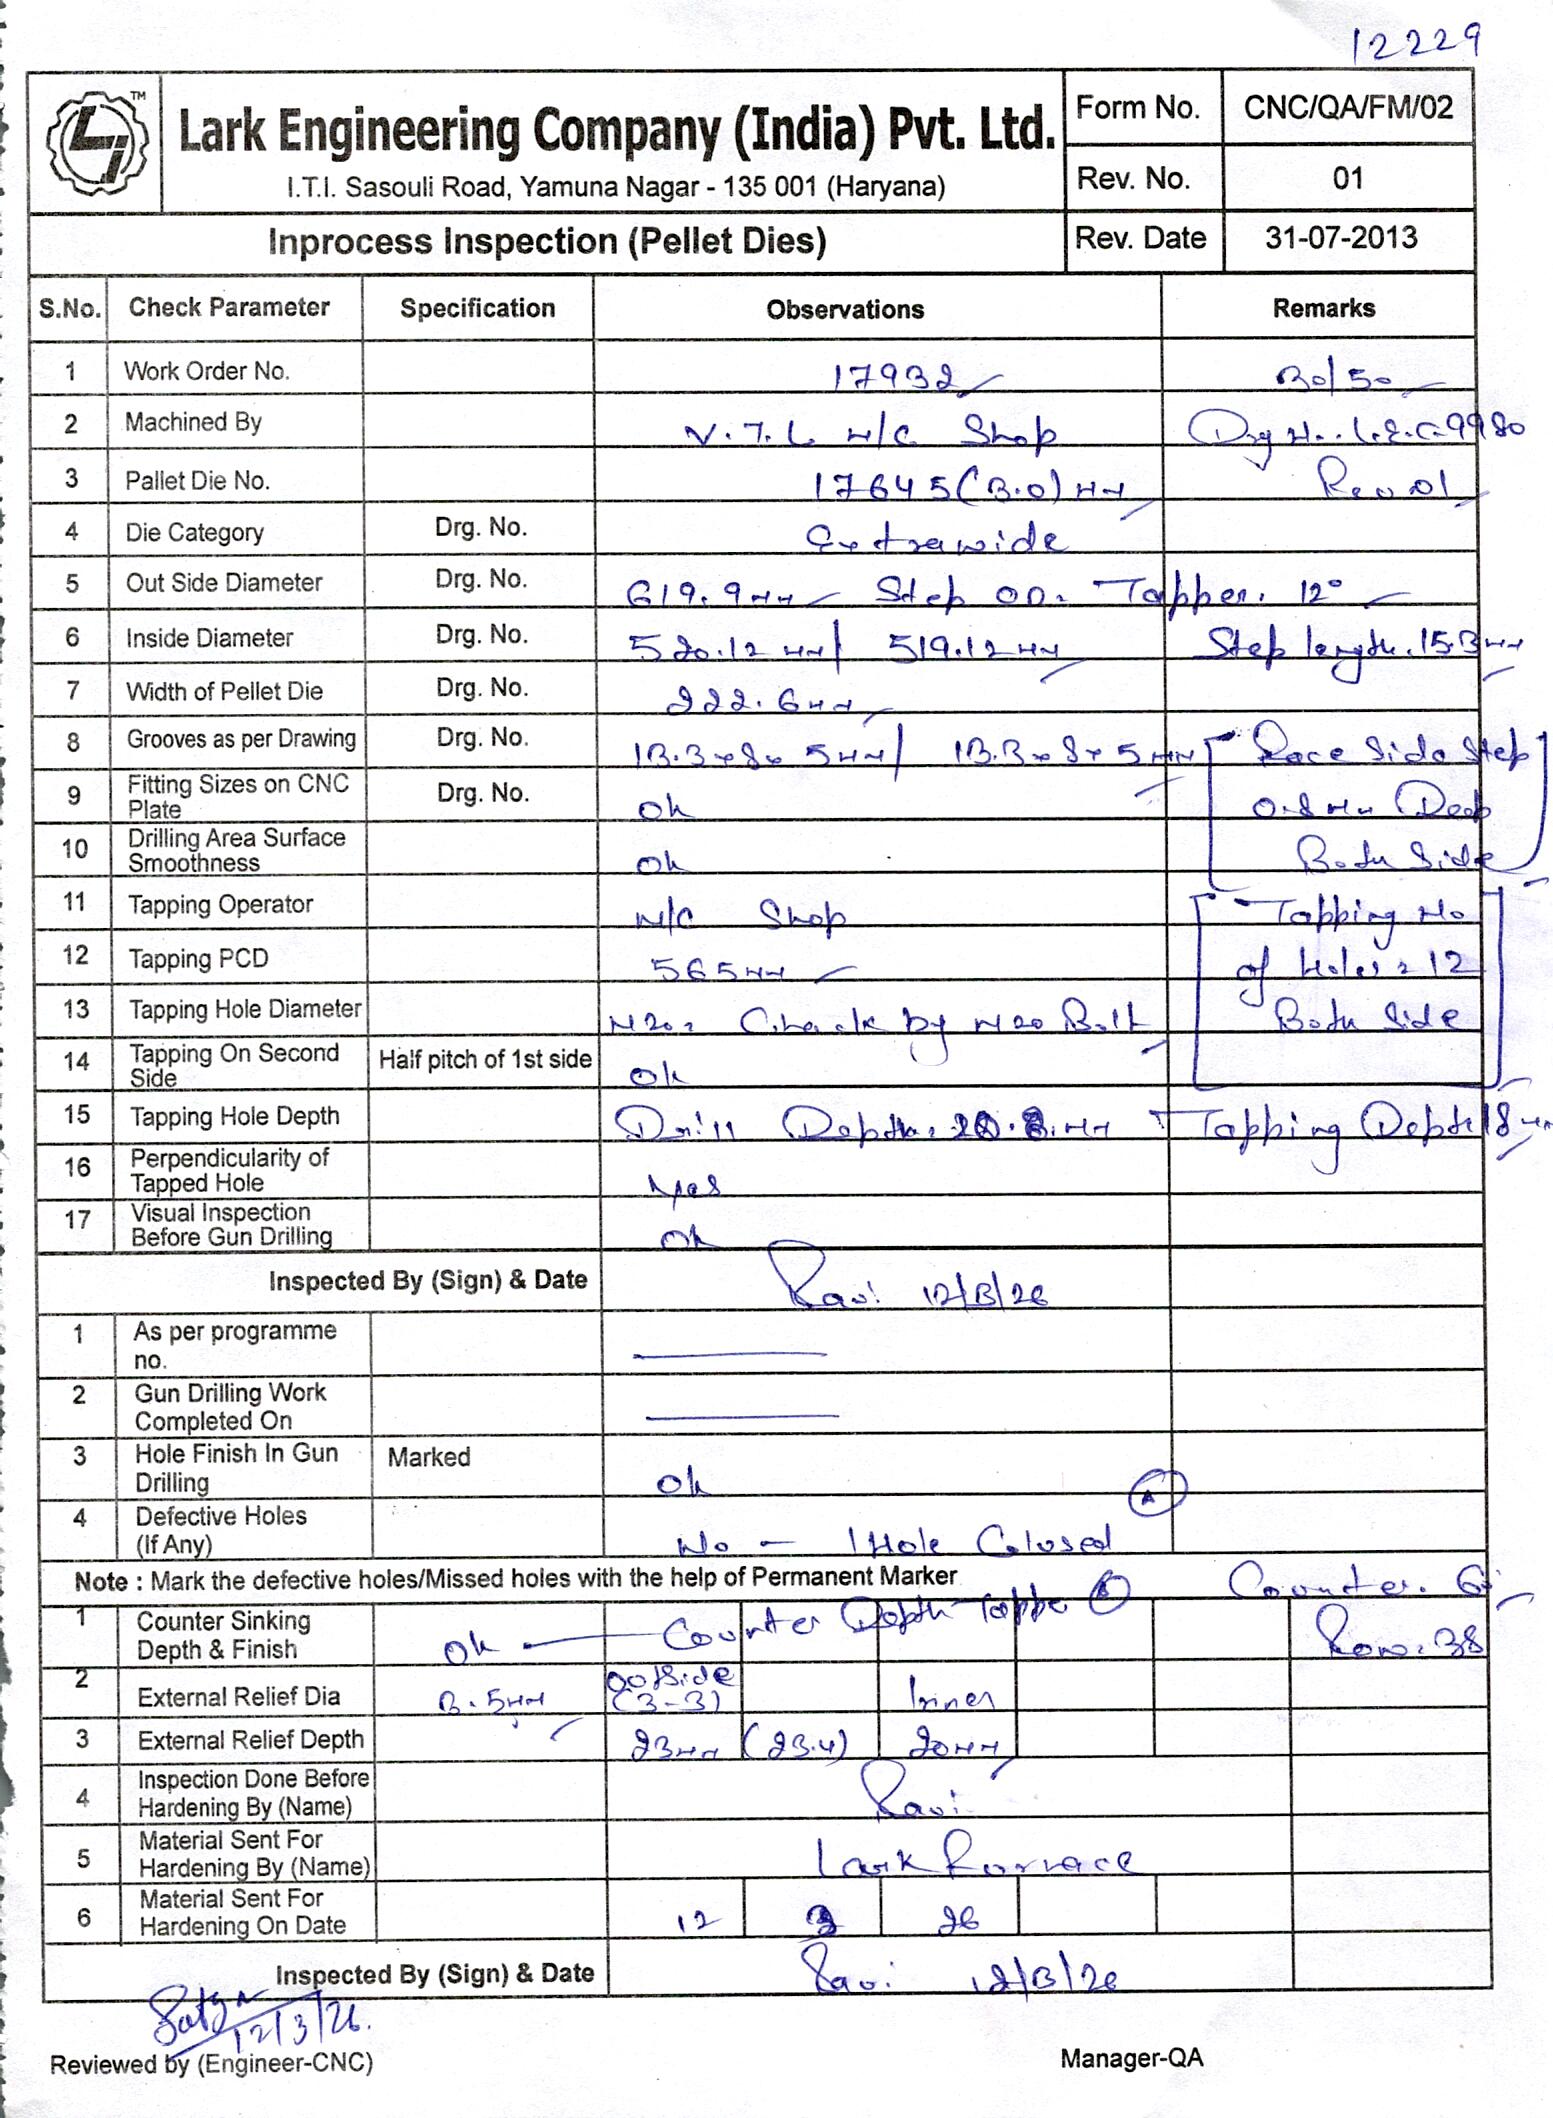 12229
TM
Lark Engineering Company (India) Pvt. Ltd.
I.T.I. Sasouli Road, Yamuna Nagar - 135 001 (Haryana)
Form No. CNC/QA/FM/02
Rev. No. 01
Inprocess Inspection (Pellet Dies)
Rev. Date 31-07-2013
S.No. Check Parameter Specification Observations Remarks
1 Work Order No. 17932 30/50
2 Machined By V.T.L M/C Shop Drg No. L.E.C-9980
3 Pallet Die No. 17645 (3.0) mm Rev 01
4 Die Category Drg. No. Extrawide
5 Out Side Diameter Drg. No. 619.9mm Step OD. Tapper. 12°
6 Inside Diameter Drg. No. 520.12 mm/ 519.12mm Step length. 15.3mm
7 Width of Pellet Die Drg. No. 222.6mm
8 Grooves as per Drawing Drg. No. 13.3x8x5mm/ 13.3x8x5mm Race Side Step
9 Fitting Sizes on CNC Plate Drg. No. Ok 0.8mm Deep
10 Drilling Area Surface Smoothness Ok Both Side
11 Tapping Operator M/C Shop Tapping No
12 Tapping PCD 565mm of Holes = 12
13 Tapping Hole Diameter M20 = Check by M20 Bolt Both Side
14 Tapping On Second Side Half pitch of 1st side Ok
15 Tapping Hole Depth Drill Depth. mm Tapping Depth 18mm
16 Perpendicularity of Tapped Hole Yes
17 Visual Inspection Before Gun Drilling Ok
Inspected By (Sign) & Date Ravi 12/3/26
1 As per programme no.
2 Gun Drilling Work Completed On
3 Hole Finish In Gun Drilling Marked Ok
4 Defective Holes (If Any) No - 1 Hole Colused A
Note : Mark the defective holes/Missed holes with the help of Permanent Marker Counter. 60°
1 Counter Sinking Depth & Finish Ok Counter Depth Tappe Row. 38
2 External Relief Dia 3.5mm outside (3-3) Inner
3 External Relief Depth 23mm (23.4) 20mm
4 Inspection Done Before Hardening By (Name) Ravi
5 Material Sent For Hardening By (Name) Lark Furnace
6 Material Sent For Hardening On Date 12 3 26
Inspected By (Sign) & Date Ravi 12/3/26
12/3/26.
Reviewed by (Engineer-CNC) Manager-QA